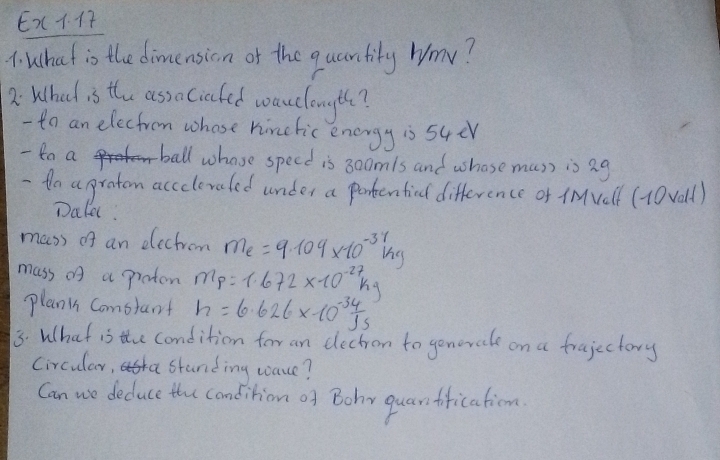 Ex 1.17
1. What is the dimension of the quantity h/mv?
2. What is the associated wavelength?
- to an electron whose kinetic energy is 54 eV
- to a proton ball whose speed is 300m/s and whose mass is 2g
- to a proton accelerated under a potential difference of 1MVolt (10Volt)
Data:
mass of an electron me = 9.109 x10^-31 kg
mass of a proton mp = 1.672 x10^-27 kg
Plank Constant h = 6.626 x 10^-34 Js
3. What is the condition for an electron to generate on a trajectory
circular, a standing wave?
Can we deduce the condition of Bohr quantification.